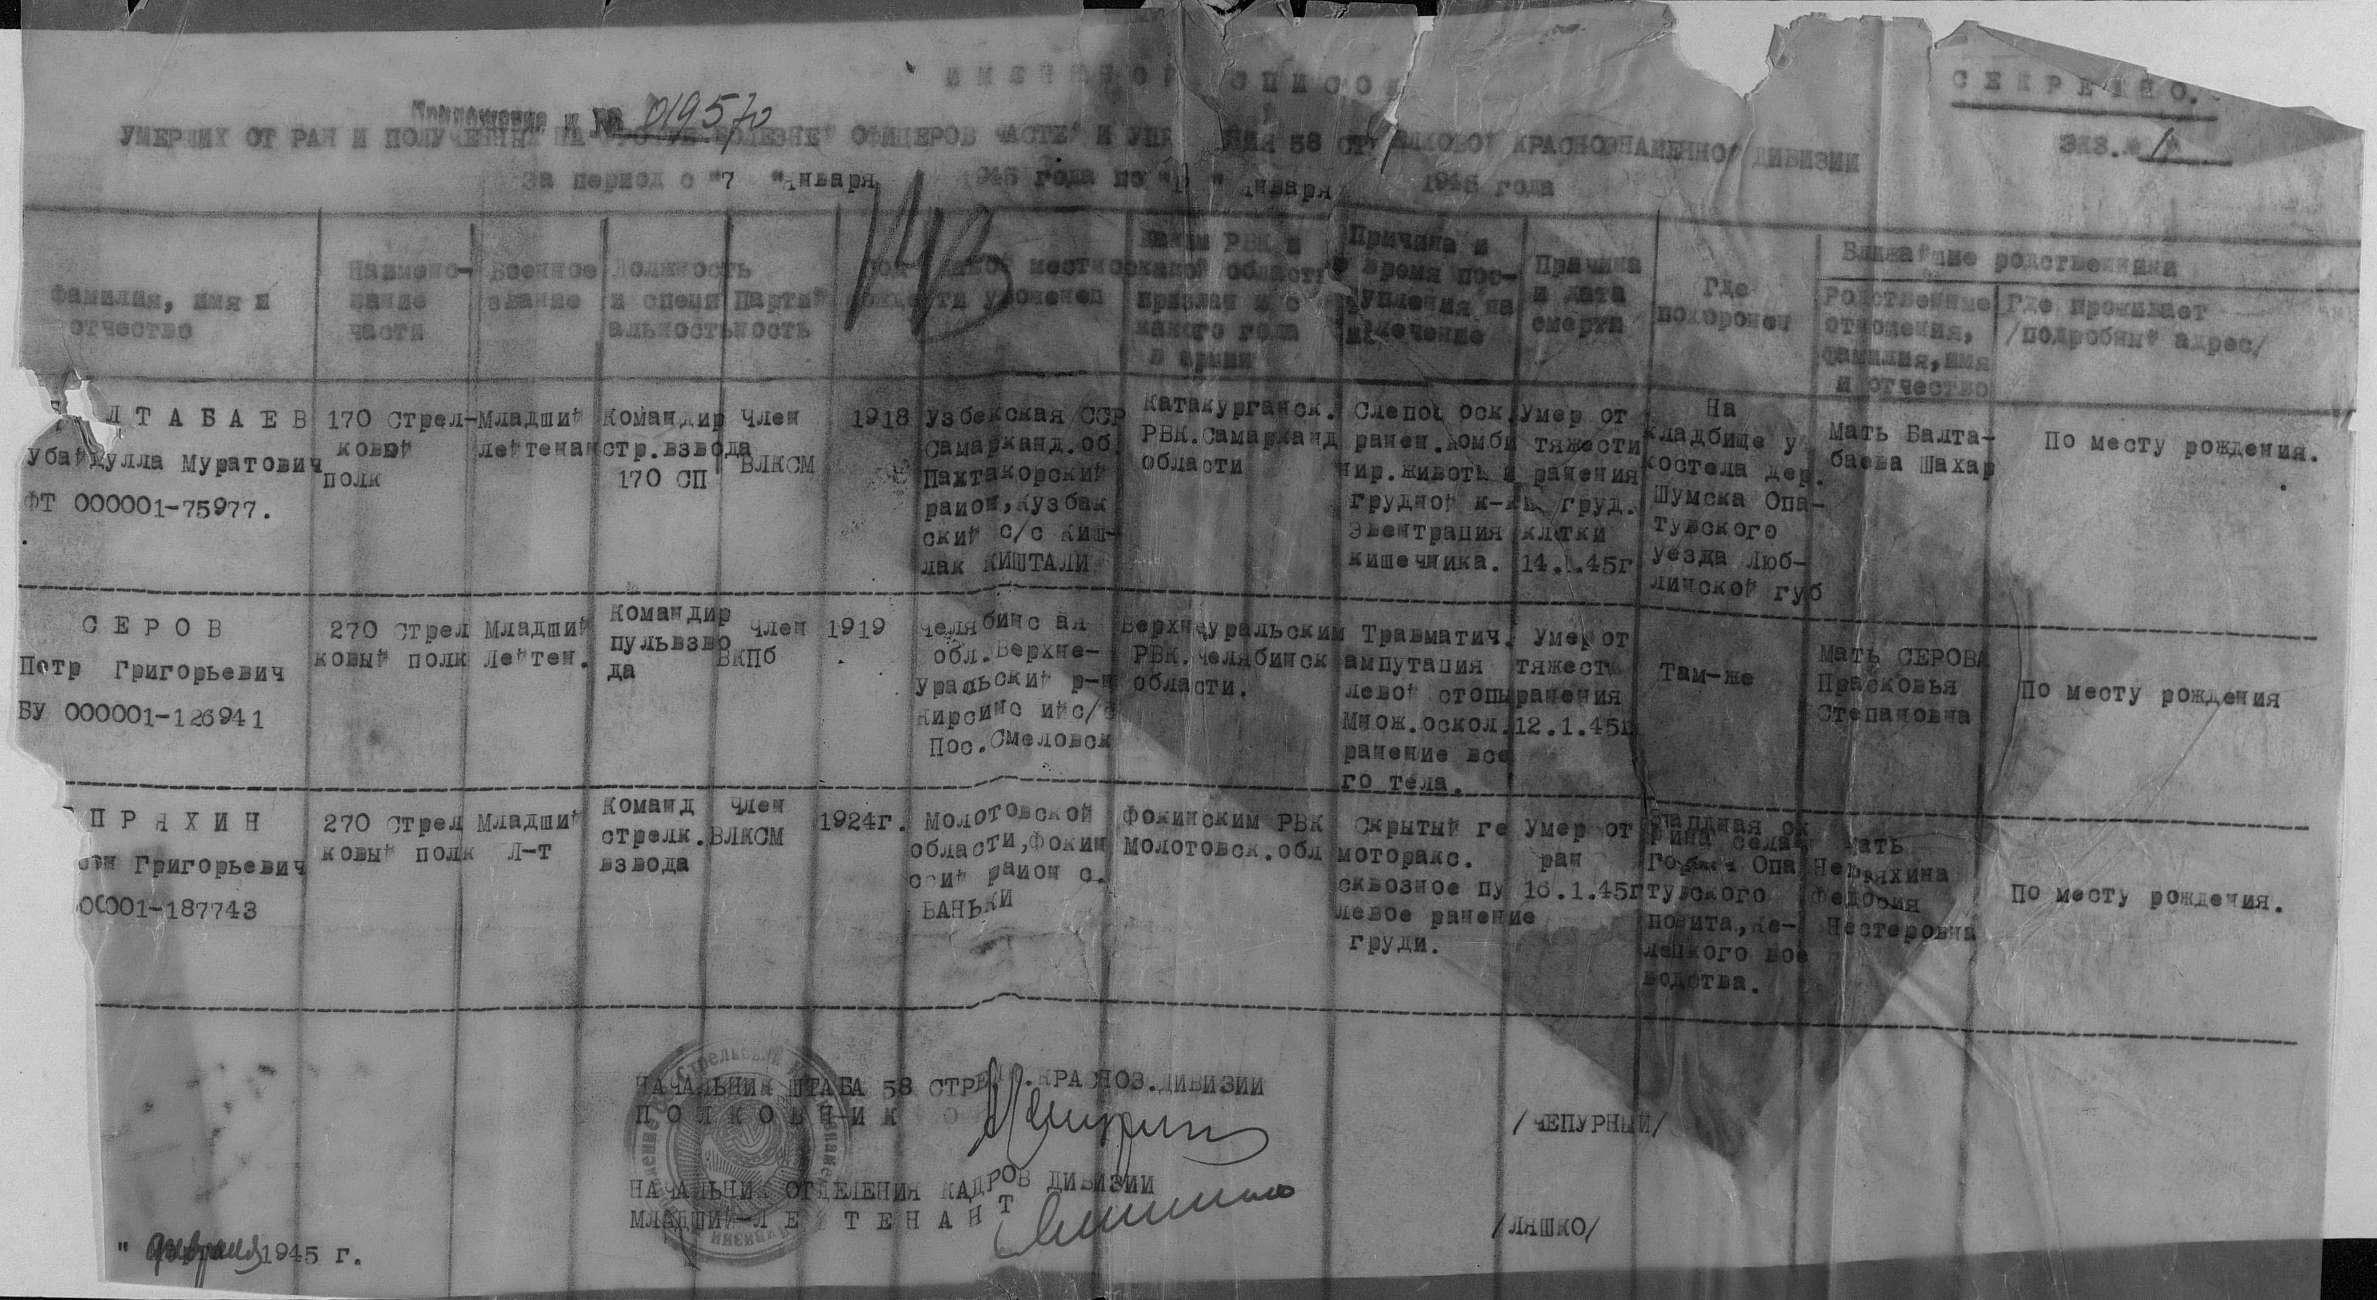 ИМЕННОЙ СПИСОК
СЕКРЕТНО.
Приложение к № 019570
УМЕРШИХ ОТ РАН И ПОЛУЧЕННЫХ НА ФРОНТЕ БОЛЕЗНЕЙ ОФИЦЕРОВ ЧАСТЕЙ И 58 СТРЕЛКОВОЙ КРАСНОЗНАМЕННОЙ ДИВИЗИИ
ЭКЗ.№ 1
За период с "7 " января 1945 года по января 1945 года
143
Фамилия, имя и
отчество
Наимено-
вание
части
Военное
звание
Должность
и специ
альность
Партий
ность
Каким РВК и
какой области
призван и с
какого года
в армии
Причина и
время пос-
тупления на
излечение
Причина
и дата
смерти
Где
похоронен
Ближайшие родственники
Родственные
отношения,
фамилия, имя
и отчество
Где проживает
/подробный адрес/
ЛТАБАЕВ
Убайдулла Муратович
ФТ 000001-75977.
170 Стрел-
ковый
полк
Младший
лейтенан
Командир
стр.взвода
170 СП
Член
ВЛКСМ
1918
Узбекская ССР
Самарканд.об.
Пахтакорский
район, Кузбак
ский с/с Киш-
лак КИШТАЛИ
Катакурганск.
РВК.Самарканд
области
Слепое оск.
ранен.комби
нир.живота и
грудной к-ки
Эвентрация
кишечника.
Умер от
тяжести
ранения
груд.
клетки
14.1.45г
На
кладбище у
костела дер.
Шумска Опа-
тувского
уезда Люб-
линской губ
Мать Балта-
баева Шахар
По месту рождения.
СЕРОВ
Петр Григорьевич
БУ 000001-126941
270 Стрел
ковый полк
Младший
Лейтен.
Командир
пульвзво
да
Член
ВКПб
1919
Челябинс ая
обл.Верхне-
Уральский р-н
Кирсинс ийс/с
Пос.Смеловск
Верхнеуральским
РВК.Челябинск
области.
Травматич.
ампутация
левой стопы
Множ.оскол.
ранение все
го тела.
Умер от
тяжести
ранения
12.1.45г
Там-же
Мать СЕРОВА
Прасковья
Степановна
По месту рождения
ПРЯХИН
Григорьевич
00001-187743
270 Стрел
ковый полк
Младший
Л-т
Команд
стрелк.
взвода
Член
ВЛКСМ
1924г.
Молотовской
области, Фокин
ский район с.
БАНЬКИ
Фокинским РВК
Молотовск.обл
Скрытый ге
моторакс.
сквозное пу
левое ранение
груди.
Умер от
ран
16.1.45г
Западная ок
раина села
Опа
тувского
повита, Ке-
лецкого вое
водства.
Мать
Непряхина
Федосия
Нестеровна
По месту рождения.
НАЧАЛЬНИК ШТАБА 58 СТРЕЛК.КРАСНОЗ.ДИВИЗИИ
ПОЛКОВНИК
/ЧЕПУРНЫЙ/
НАЧАЛЬНИК ОТДЕЛЕНИЯ КАДРОВ ДИВИЗИИ
МЛАДШИЙ ЛЕЙТЕНАНТ
/ЛЯШКО/
" февраля 1945 г.